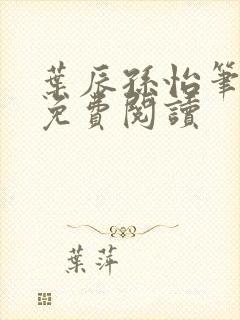 葉辰孫怡筆
免費閱讀
葉萍